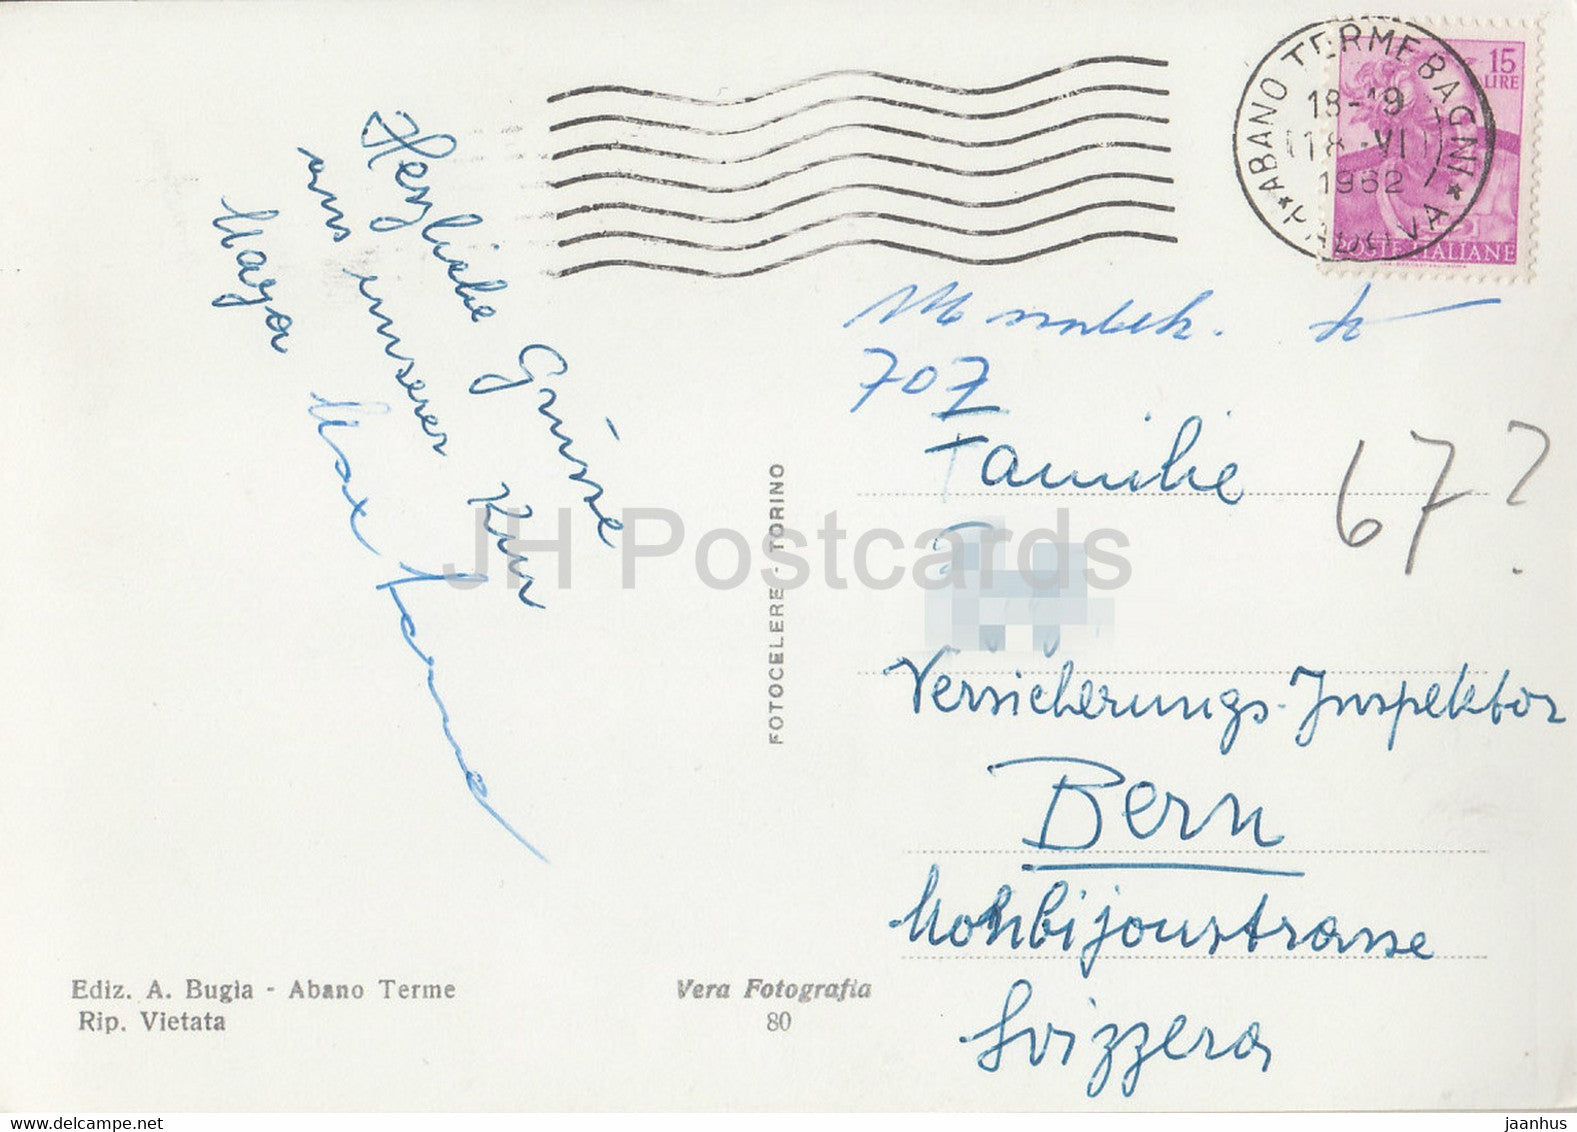 Herzliche Grüsse
aus unserer Kur
Maya
Max
ABANO TERME BAGNI
18-19
18.-VI
1962
15
LIRE
POSTE ITALIANE
707
Familie
67?
Versicherungs-Inspektor
Bern
Monbijoustrasse
Svizzera
FOTOCELERE - TORINO
JH Postcards
Ediz. A. Bugia - Abano Terme
Rip. Vietata
Vera Fotografia
80
www.delcampe.net
jaanhus